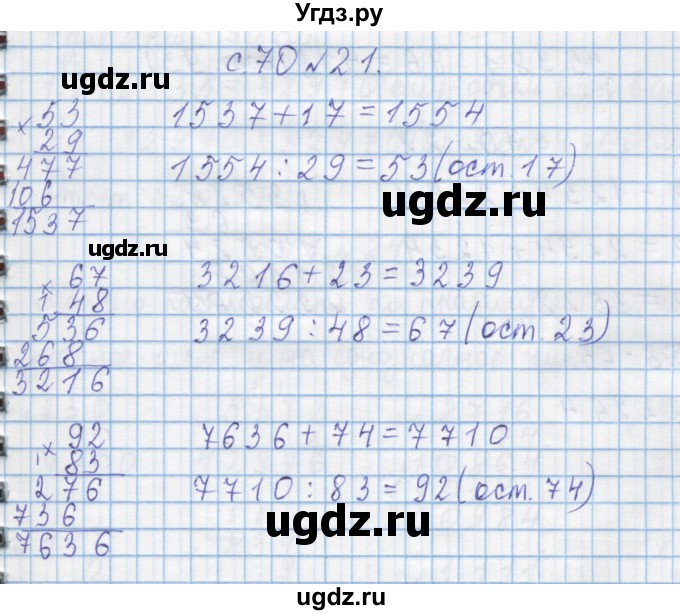 Угдз.ру
с 70 № 21.
ugdz.ru
× 53
29
477
106
1537
1537 + 17 = 1554
1554 : 29 = 53 (ост. 17)
ugdz.ru
ugdz.ru
× 67
1 48
536
268
3216
3216 + 23 = 3239
3239 : 48 = 67 (ост. 23)
ugdz.ru
× 92
83
276
736
7636
7636 + 74 = 7710
7710 : 83 = 92 (ост. 74)
ugdz.ru
ugdz.ru